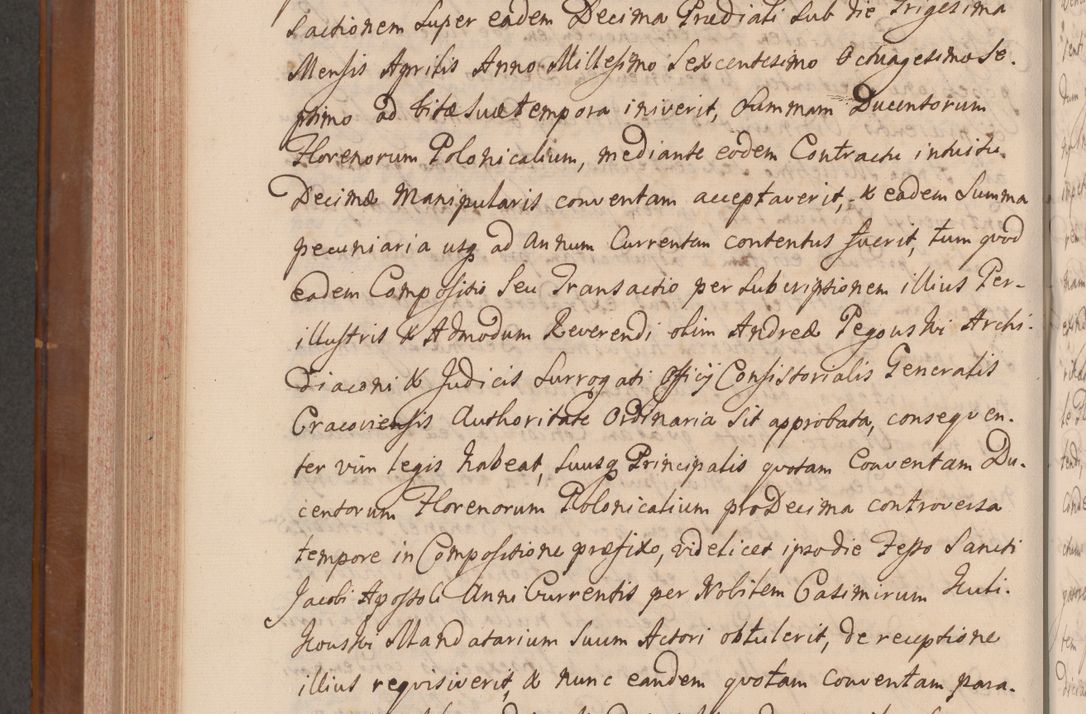 sactionem super eadem Decima Prædiali sub die Trigesima
Mensis Aprilis Anno Millesimo Sexcentesimo Octuagesimo Se-
ptimo ad Vitæ suæ tempora iniverit, summam Ducentorum
Florenorum Polonicalium, mediante eodem Contractu intuitu
Decimæ Manipularis conventam acceptaverit, & eadem Summa
pecuniaria usq ad Annum Currentem contentus fuerit, tum quod
eadem Compositio seu Transactio per subcriptionem illius Per-
illustris & Admodum Reverendi olim Andreæ Pegowski Archi-
Diaconi & Judicis Surrogati Officij Consistorialis Generalis
Cracoviensis Authoritate Ordinaria sit approbata, consequen-
ter vim legis habeat, suusq Principalis quotam Conventam Du-
centorum Florenorum Polonicalium pro Decima controversa
tempore in Compositione præfixo, videlicet ipso die Festo Sancti
Jacobi Apostoli Anni Currentis per Nobilem Casimirum
Mandatarium suum Actori obtulerit, de receptione
illius requisiverit, & nunc eandem quotam Conventam para-